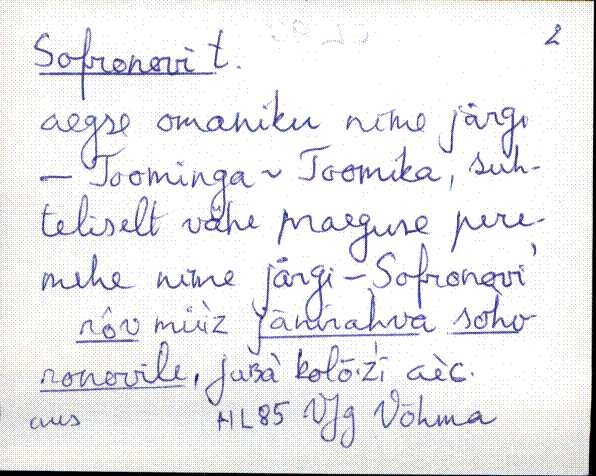 2
Sofronovi t.
aegse omaniku nime järgi
– Toominga ~ Toomika, suh-
teliselt vähe praeguse pere-
mehe nime järgi – Sofronovi
rôv müìz jänirahva soho-
ronovile, juBà kolõ·z̀i aèc.
aus HL85 VJg Võhma